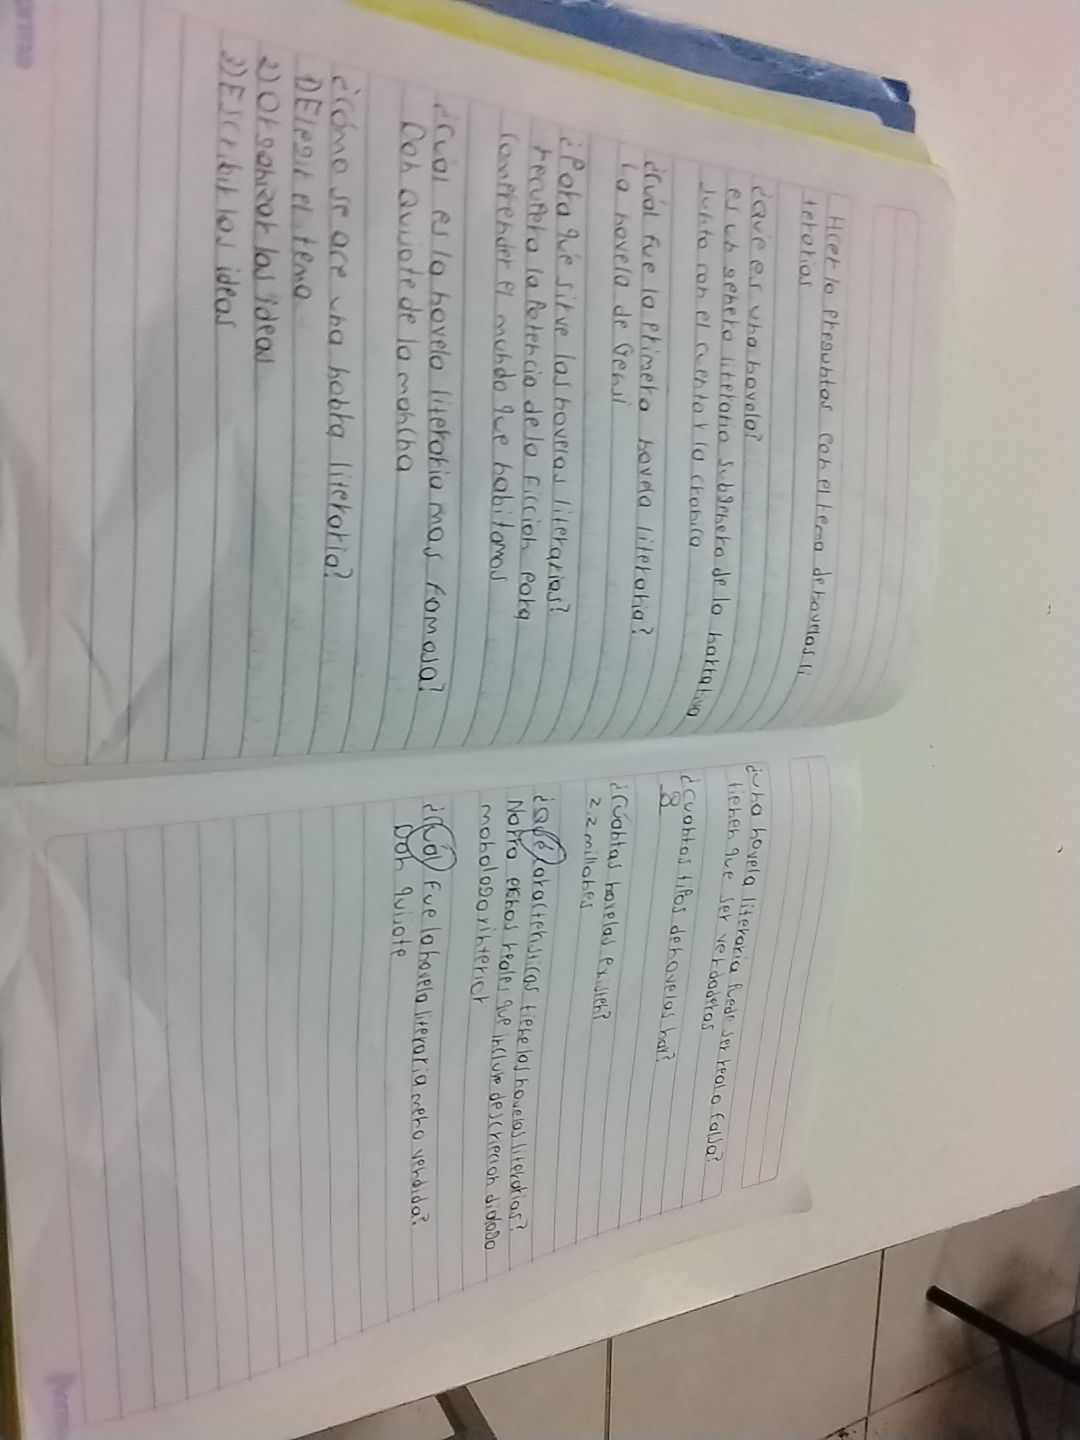 Hcer lo preguntas con el tema de novelas li
terarias
¿Qué es una novela?
es un genero literario subgenero de la narrativa
Junto con el cuento y la cronica
¿Cuál fue la primera novela literaria?
La novela de Genji
¿Para qué sirve las novelas literarias?
recupera la potencia de la ficcion para
comprender el mundo que habitamos
¿Cuál es la novela literaria mas famosa?
Don Quijote de la mancha
¿Cómo se ace una literaria?
1) Elegir el tema
2) Organizar las ideas
3) Escribir las ideas
norma
¿Una novela literaria puede ser real o falsa?
tienen que ser verdaderas
¿Cuantos tipos de novelas hay?
8
¿Cuántas novelas existen?
22 millones
¿Qué características tiene las novelas literarias?
Narra reales que incluye descripcion dialogo
interior
¿Cuál fue la novela literaria meno vendida?
Don quijote
norma